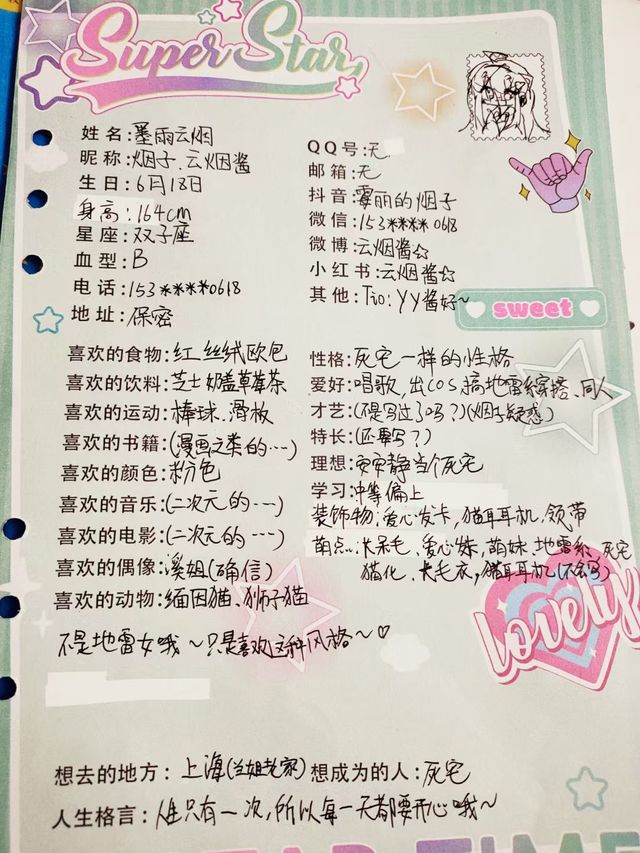 Super Star
姓名:墨雨云烟
昵称:烟子、云烟酱
生日:6月18日
身高:164cm
星座:双子座
血型:B
电话:153****0618
地址:保密
QQ号:无
邮箱:无
抖音:霎丽的烟子
微信:153****0618
微博:云烟酱☆
小红书:云烟酱☆
其他:Tio:YY酱好~
sweet
喜欢的食物:红丝绒欧包
喜欢的饮料:芝士奶盖草莓茶
喜欢的运动:棒球、滑板
喜欢的书籍:(漫画之类的…)
喜欢的颜色:粉色
喜欢的音乐:(二次元的…)
喜欢的电影:(二次元的…)
喜欢的偶像:溪姐(确信)
喜欢的动物:缅因猫、狮子猫
性格:死宅一样的性格
爱好:唱歌,出COS,搞地雷系穿搭、同人
才艺:(不是写过了吗?)(烟子疑惑)
特长:(还要写?)
理想:安安静静当个死宅
学习:中等偏上
装饰物:爱心发卡,猫耳耳机,领带
萌点:呆毛、爱心妹,萌妹、地雷系、死宅
猫化、大毛衣,猫耳耳机(不会写)
lovely
不是地雷女哦~只是喜欢这种风格~♡
想去的地方:上海(兰姐老家)
想成为的人:死宅
人生格言:人生只有一次,所以每一天都要开心哦~
TIME